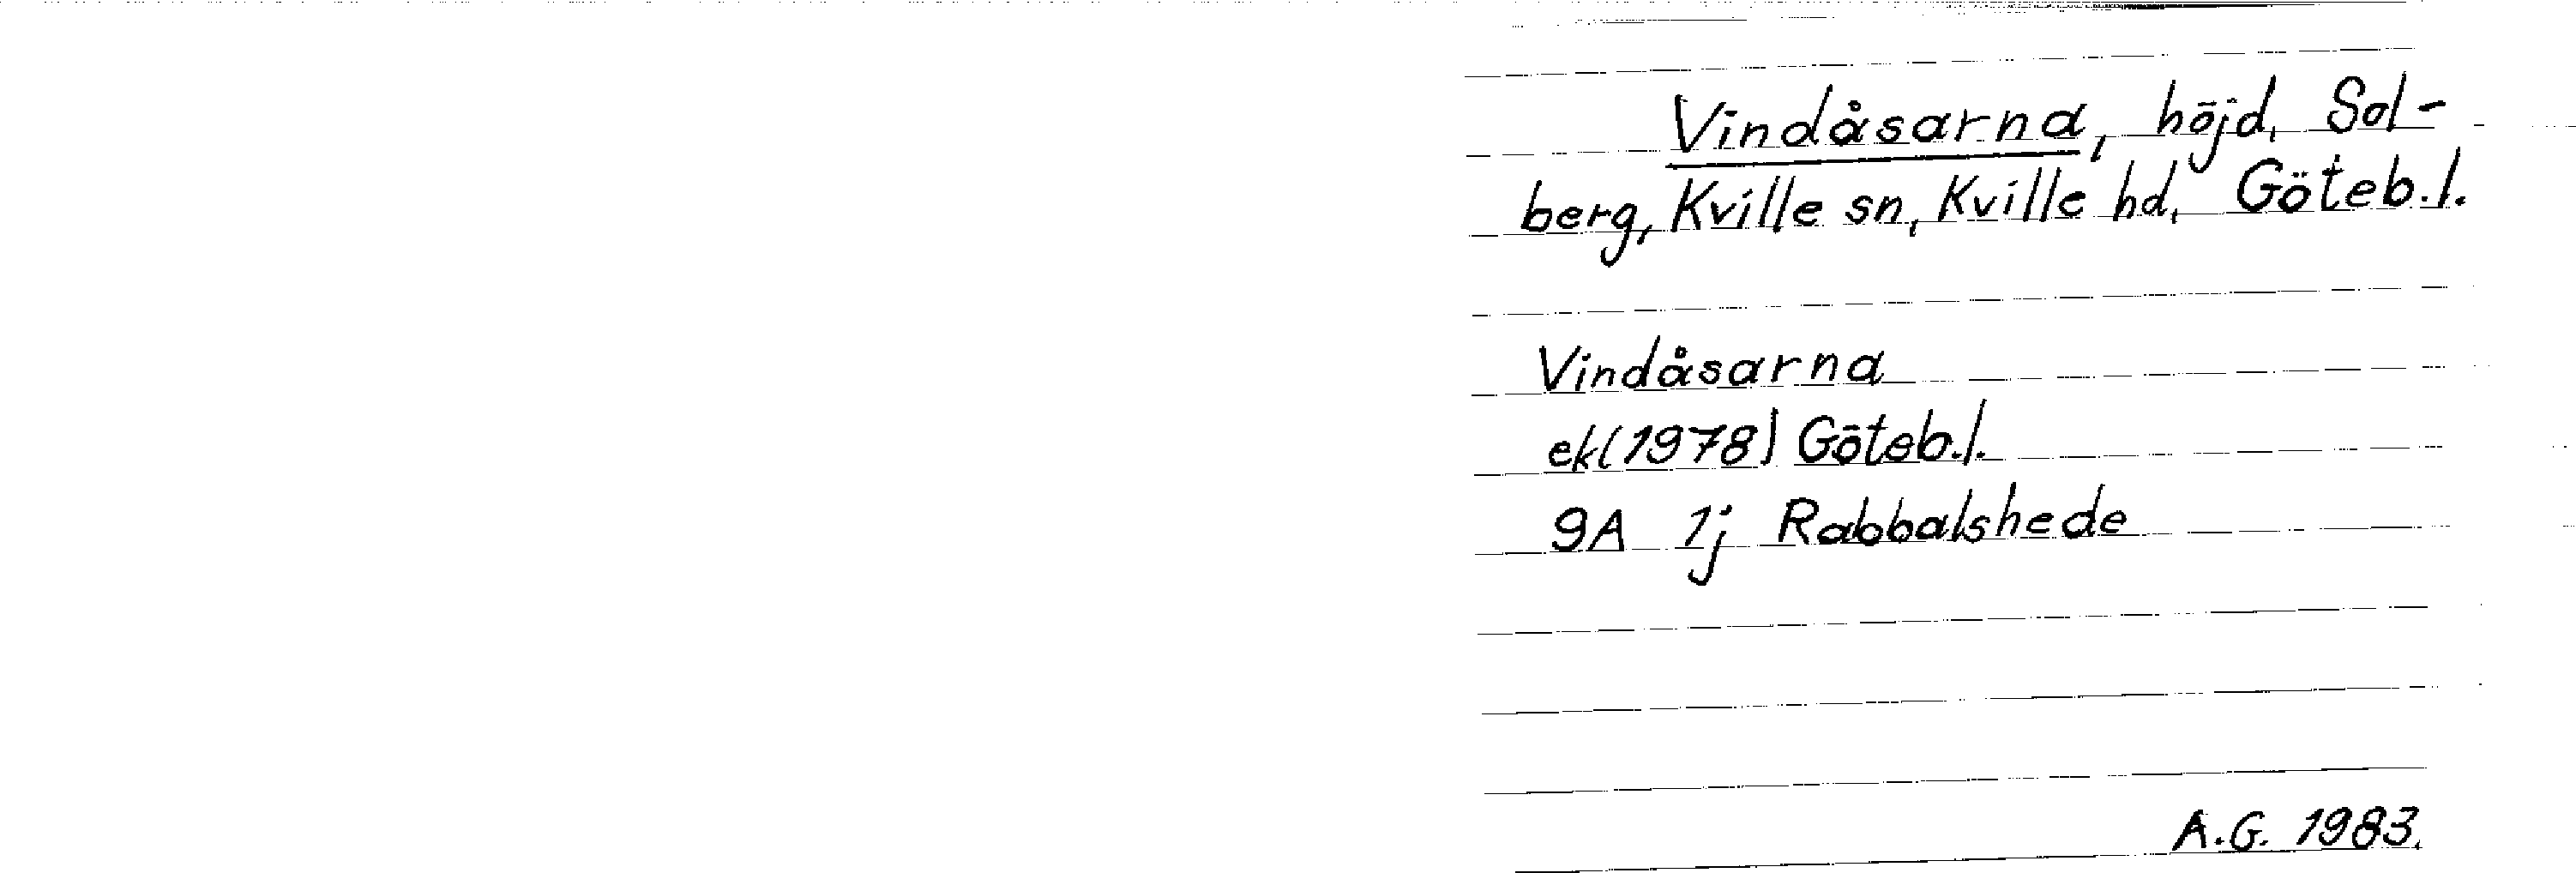 Vindåsarna, höjd, Sol-
berg, Kville sn, Kville hd, Göteb.l.
Vindåsarna
ek(1978) Göteb.l.
9A 1j Rabbalshede
A.G. 1983.